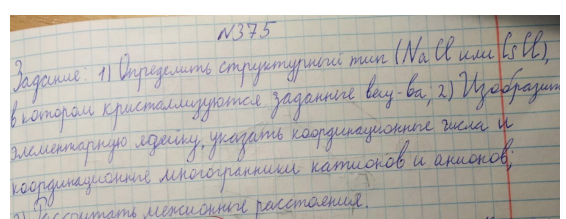 №375
Задание: 1) Определить структурный тип (NaCl или CsCl),
в котором кристаллизуются заданные вещ-ва, 2) Изобразить
элементарную ячейку, указать координационные числа и
координационные многогранники катионов и анионов,
межионные расстояния.